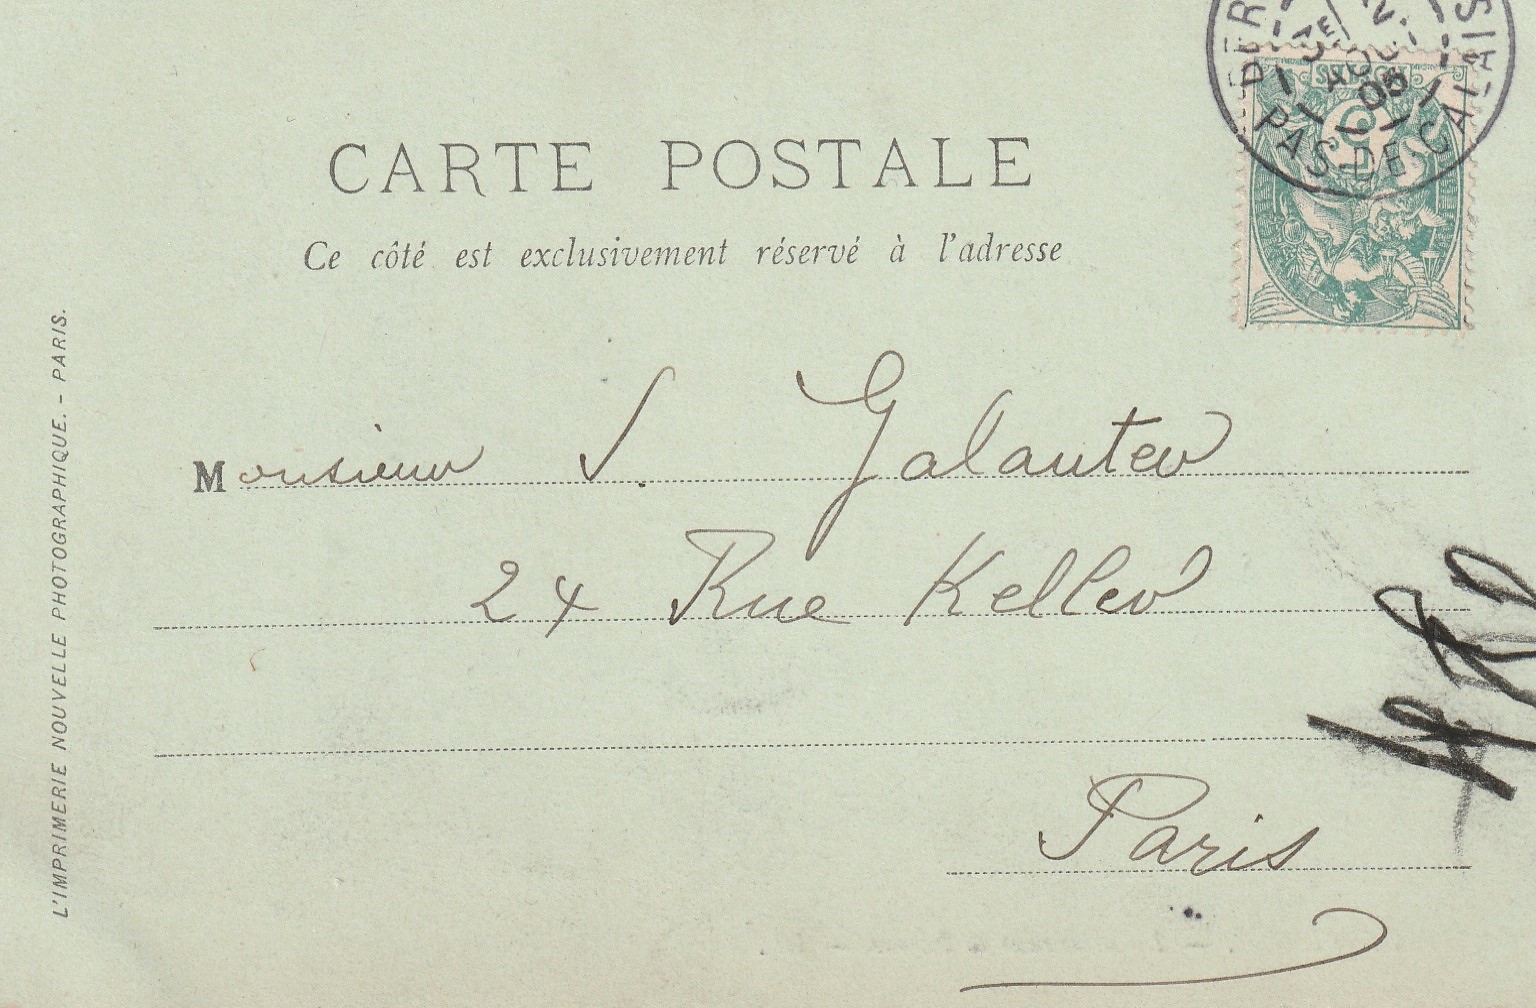 CARTE POSTALE
Ce côté est exclusivement réservé à l'adresse
Monsieur S. Galanter
24 Rue Keller
Paris
L'IMPRIMERIE NOUVELLE PHOTOGRAPHIQUE. - PARIS.
PAS-DE-CALAIS
05
POSTES
5